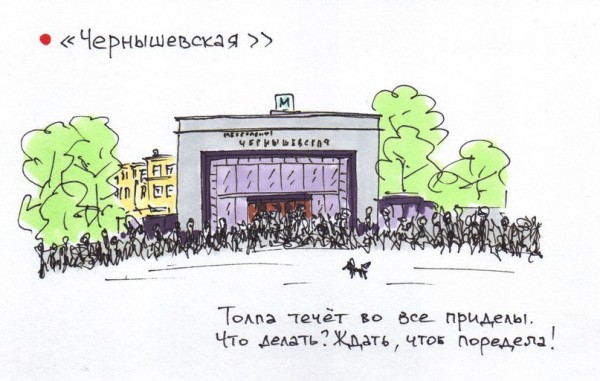 «Чернышевская»
М
ЧЕРНЫШЕВСКАЯ
Толпа течёт во все приделы.
Что делать? Ждать, чтоб поредела!